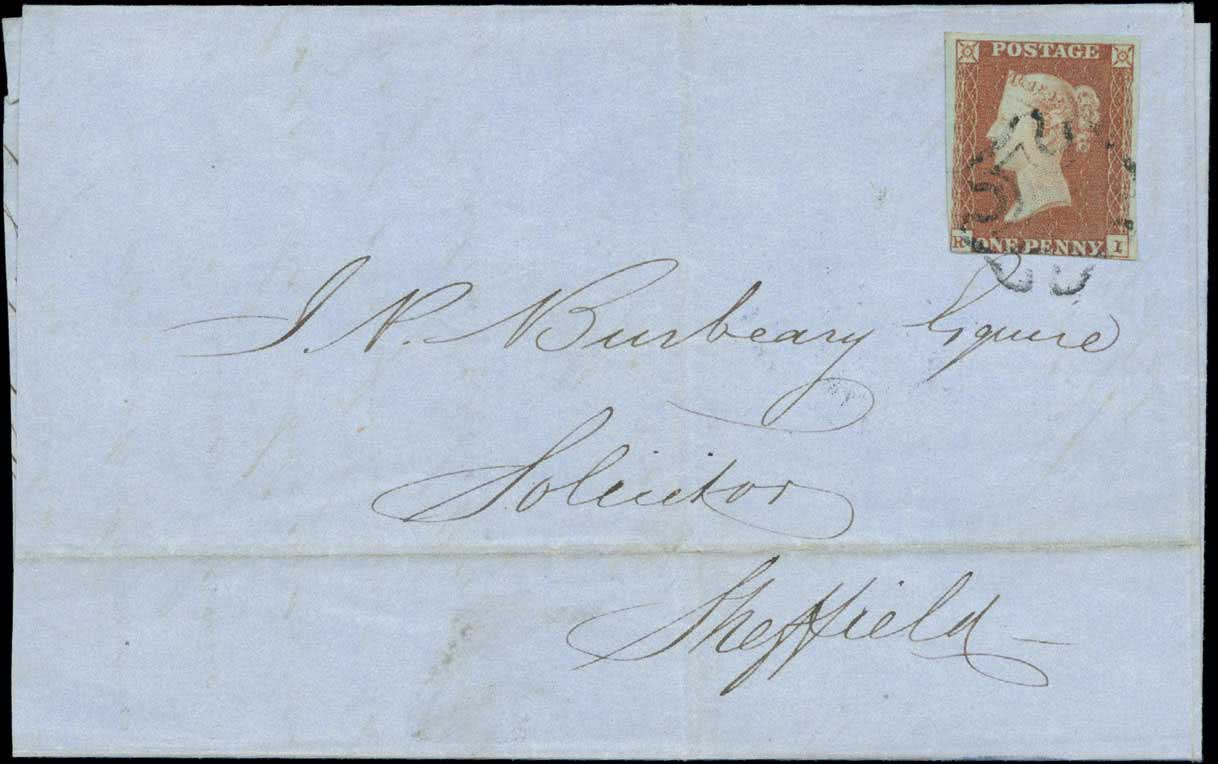 POSTAGE
R ONE PENNY I
J. N. Burbeary Esquire
Solicitor
Sheffield